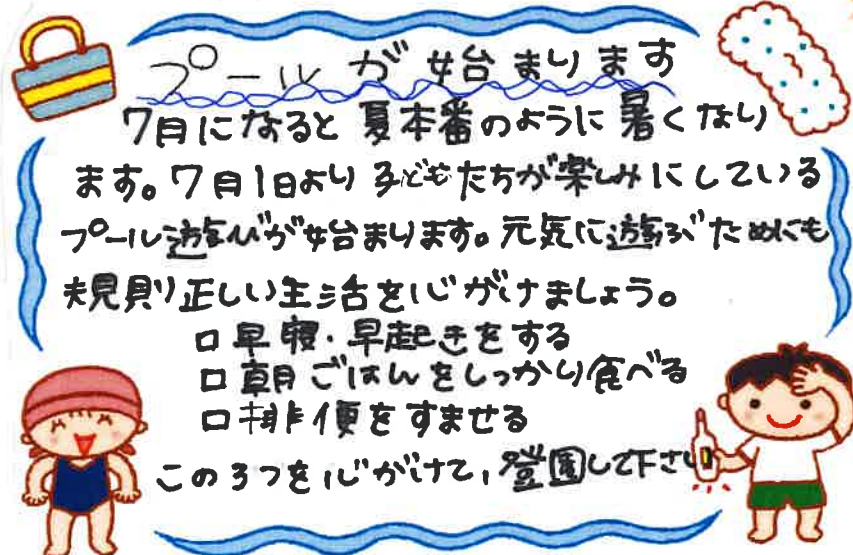 プールが始まります
7月になると夏本番のように暑くなり
ます。7月1日より子どもたちが楽しみにしている
プール遊びが始まります。元気に遊ぶためにも
規則正しい生活を心がけましょう。
□早寝・早起きをする
□朝ごはんをしっかり食べる
□排便をすませる
この3つを心がけて、登園して下さい